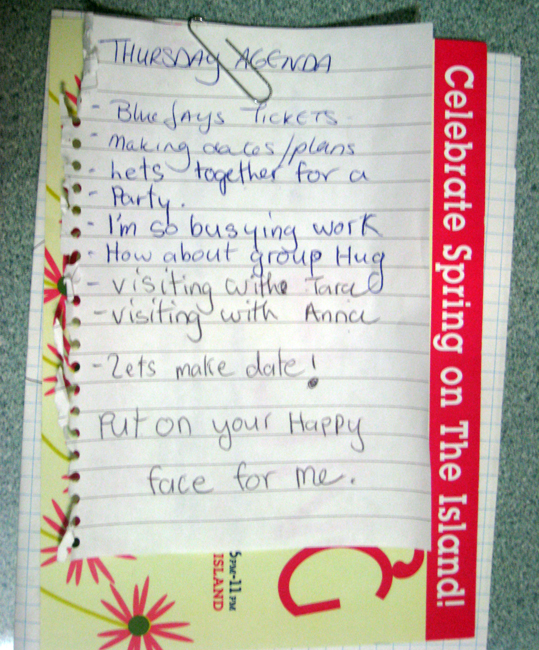 THURSDAY AGENDA
- BlueJays TICKETS
- Making dates/plans
- Lets together for a
- Party.
- I'm so busying work
- How about group Hug
- visiting withe Tara
- visiting with Anna
- Lets make date!
Put on your Happy
face for me.
Celebrate Spring on The Island!
5PM-11PM
ISLAND